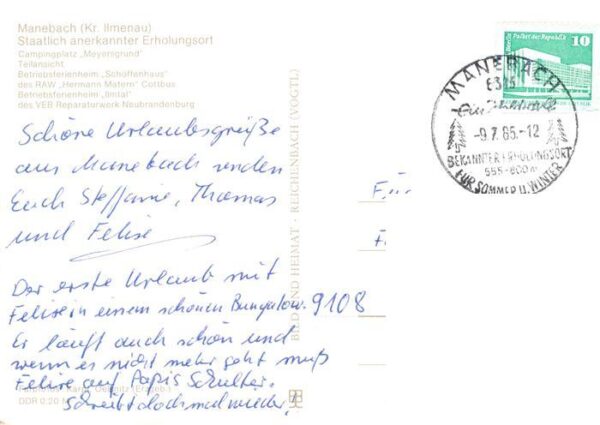 Manebach (Kr. Ilmenau)
Staatlich anerkannter Erholungsort
Campingplatz „Meyersgrund“
Teilansicht
Betriebsferienheim „Schöffenhaus“
des RAW „Hermann Matern“ Cottbus
Betriebsferienheim „Ilmtal“
des VEB Reparaturwerk Neubrandenburg
Schöne Urlaubsgrüße
aus Manebach senden
Euch Steffanie, Thomas
und Felise
Der erste Urlaub mit
Felise in einem schönen Bungalow. 9108
Er läuft auch schön und
wenn es nicht mehr geht muß
Felise auf Papis Schulter.
Schreibt doch mal wieder!
DDR 0,20 M
BILD UND HEIMAT · REICHENBACH (VOGTL)
Palast der Republik
10
MANEBACH
6325
-9.7.85.-12
BEKANNTER ERHOLUNGSORT
555-800m
FÜR SOMMER U. WINTER